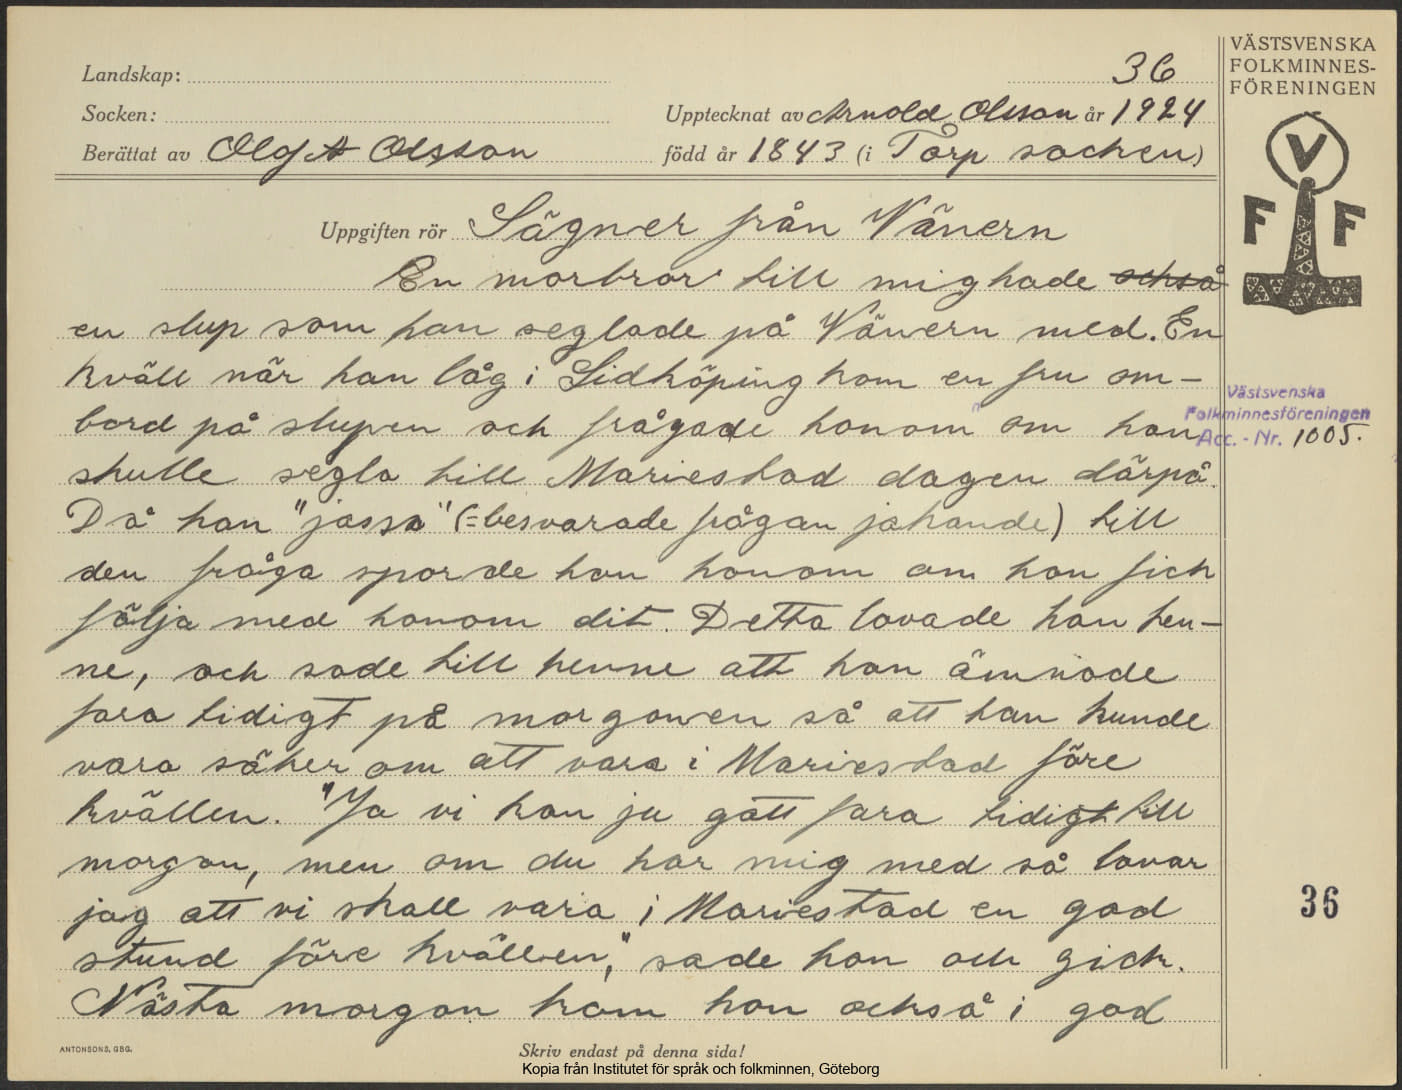 Landskap:
36
Socken:
Upptecknat av Arnold Olsson år 1924
Berättat av Olof A Olsson född år 1843 (i Torp socken)
VÄSTSVENSKA
FOLKMINNES-
FÖRENINGEN
V
F F
Uppgiften rör Sägner från Vänern
En morbror till mig hade också
en slup som han seglade på Vänern med. En
kväll när han låg i Lidköping kom en fru om-
bord på slupen och frågade honom om han
skulle segla till Mariestad dagen därpå.
Då han "jassa" (=besvarade frågan jakande) till
den fråga sporde hon honom om hon fick
följa med honom dit. Detta lovade han hen-
ne, och sade till henne att han ämnade
fara tidigt på morgonen så att han kunde
vara säker om att vara i Mariestad före
kvällen. "Ja vi kan ju gått fara tidigt till
morgon, men om du har mig med så lovar
jag att vi skall vara i Mariestad en god
stund före kvällen," sade hon och gick.
Nästa morgon kom hon också i god
Västsvenska
Folkminnesföreningen
Acc. - Nr. 1005.
36
ANTONSONS, GBG.
Skriv endast på denna sida!
Kopia från Institutet för språk och folkminnen, Göteborg